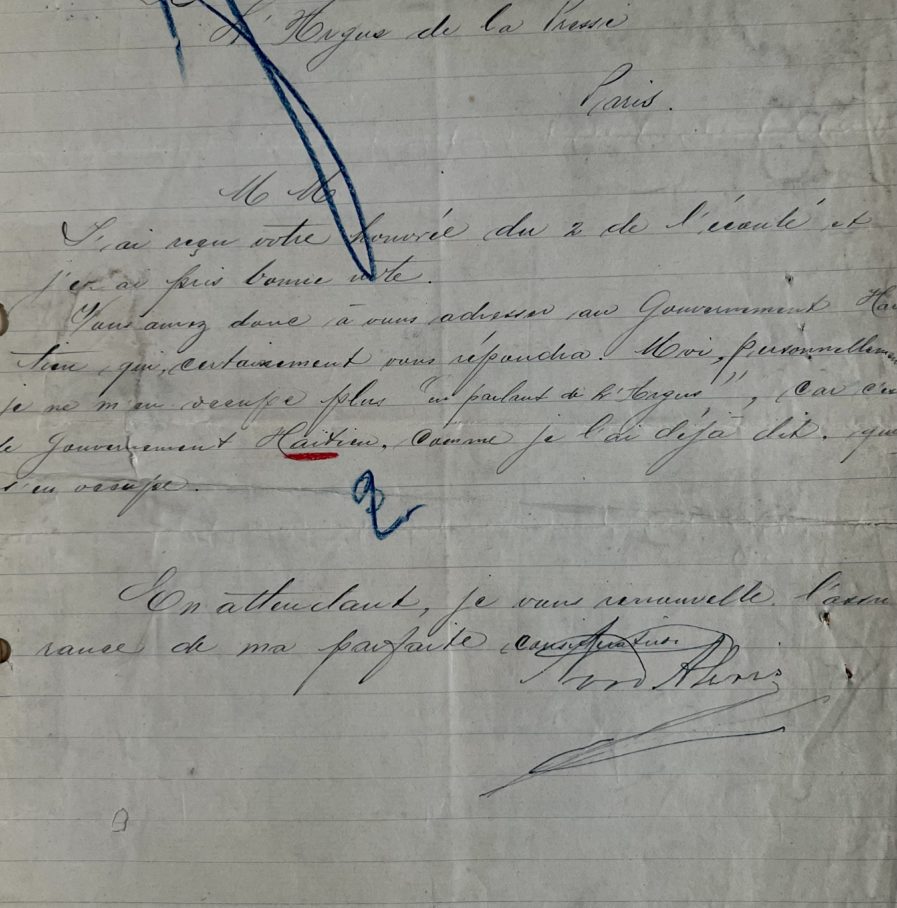 L'Argus de la Presse
Paris.
M M
J'ai reçu votre honorée du 2 de l'écoulé et
j'en ai pris bonne note.
Vous aurez donc à vous adresser au Gouvernement Haï
tien, qui, certainement vous répondra. Moi, personnellement
je ne m'en occupe plus "en parlant de l'Argus", car c'est
le Gouvernement Haïtien, comme je l'ai déjà dit, qui
s'en occupe.
2
En attendant, je vous renouvelle l'assu
rance de ma parfaite considération
Nord Alexis